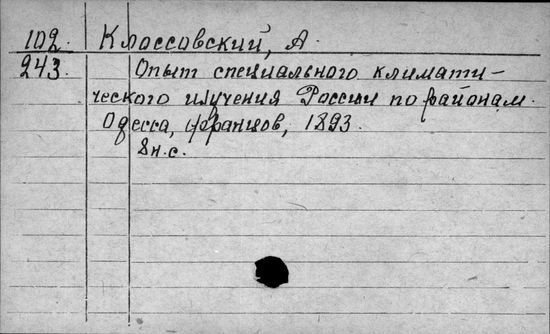 102. Клоссовский, А.
243. Опыт специального климати-
ческого изучения России по районам.
Одесса, Францов, 1893.
8н.с.